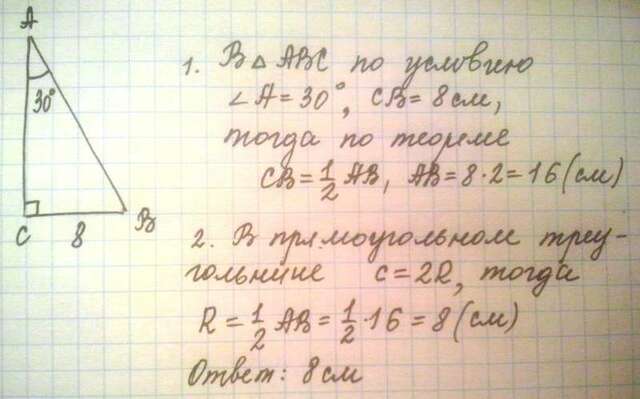 A
30°
C
8
B
1. В △ ABC по условию
∠A = 30°, CB = 8 см,
тогда по теореме
CB = 1/2 AB, AB = 8 · 2 = 16 (см)
2. В прямоугольном треу-
гольнике c = 2R, тогда
R = 1/2 AB = 1/2 · 16 = 8 (см)
Ответ: 8 см